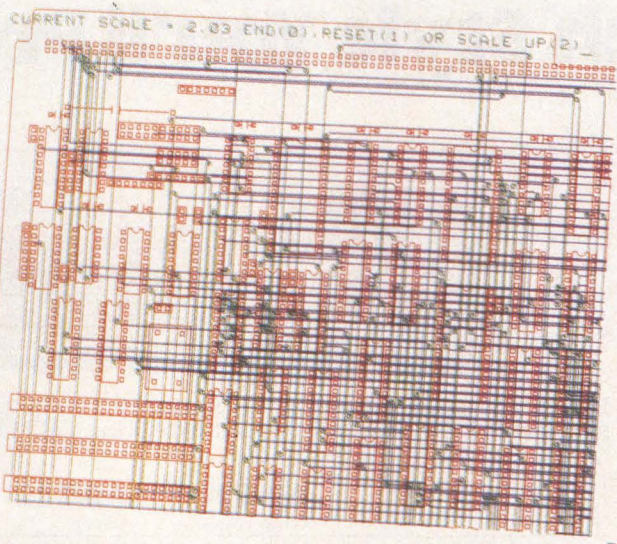 CURRENT SCALE = 2.03 END(0),RESET(1) OR SCALE UP(2)_